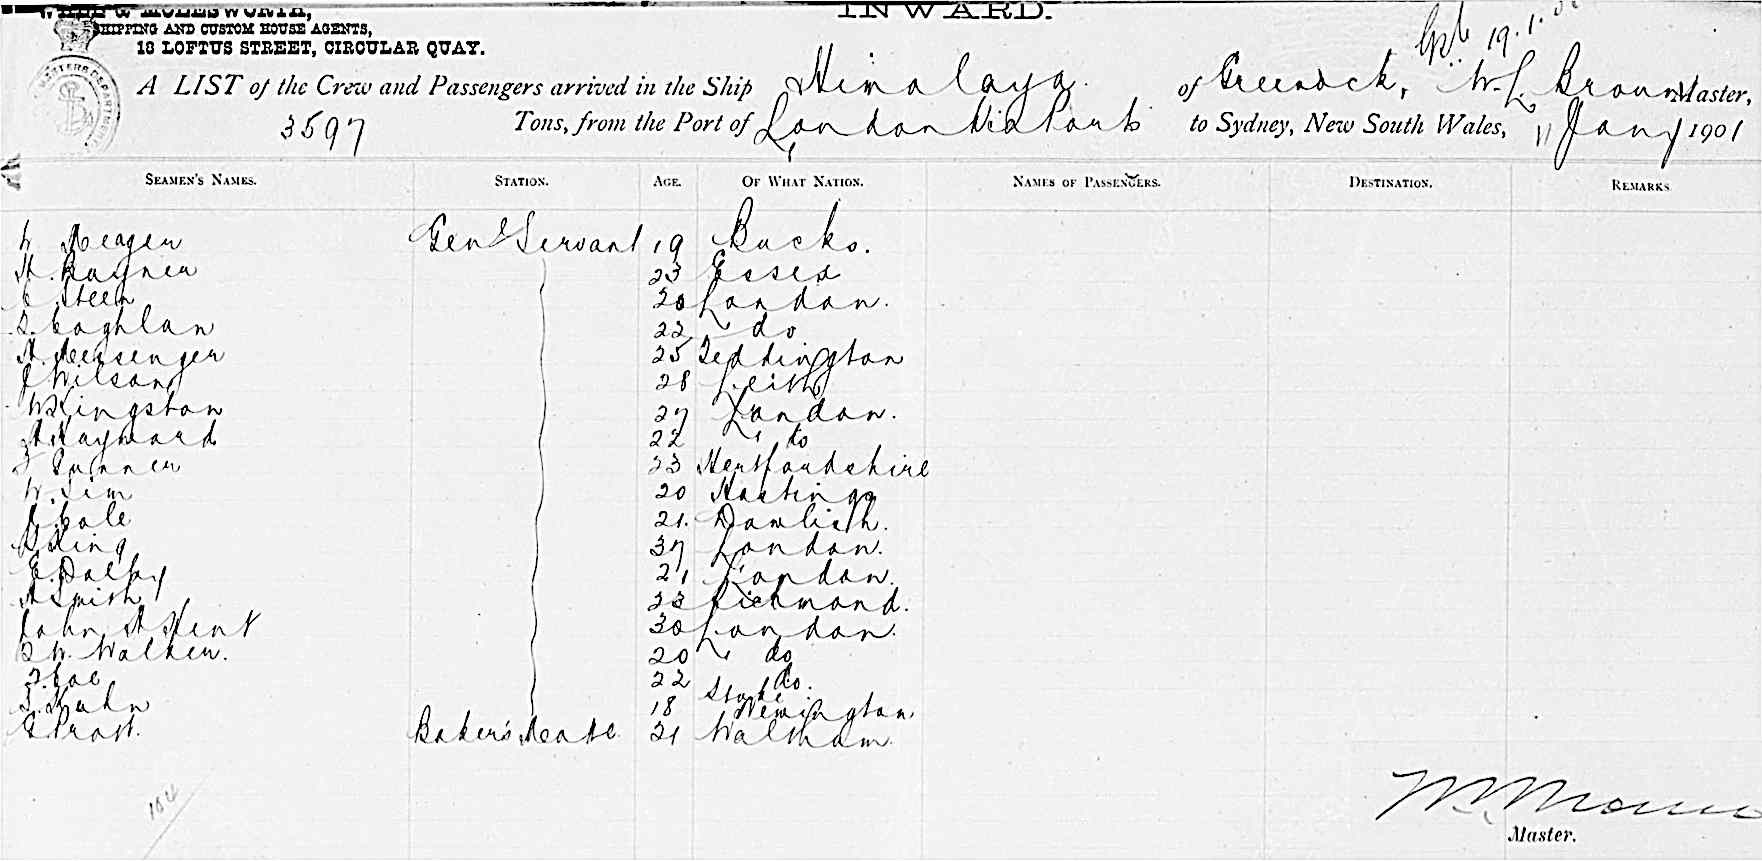 INWARD.
SHIPPING AND CUSTOM HOUSE AGENTS,
18 LOFTUS STREET, CIRCULAR QUAY.
A LIST of the Crew and Passengers arrived in the Ship Himalaya of Greenock, W. L. Brown Master,
3597 Tons, from the Port of London Via Ports to Sydney, New South Wales, 11 Jany 1901
SEAMEN'S NAMES. STATION. AGE. OF WHAT NATION. NAMES OF PASSENGERS. DESTINATION. REMARKS
Meager Genl Servant 19 Bucks.
H. Rayner 23 Essex
Steen 20 London.
Coghlan 22 " do
H. Messenger 25 Teddington
J Wilson 28 Leith
W Kingston 27 London.
A Hayward 22 " do
23 Hertfordshire
W. Sim 20 Hastings
Cole 21. Dawlish.
King 37 London.
E. Dalby 21 London.
A Smith 23 Richmond.
John A Kent 30 London.
W. Walker. 20 " do
Coe 22 do.
Hahn 18 Stoke Newington
Pratt. Baker's Mate 21 Waltham.
104
Master.